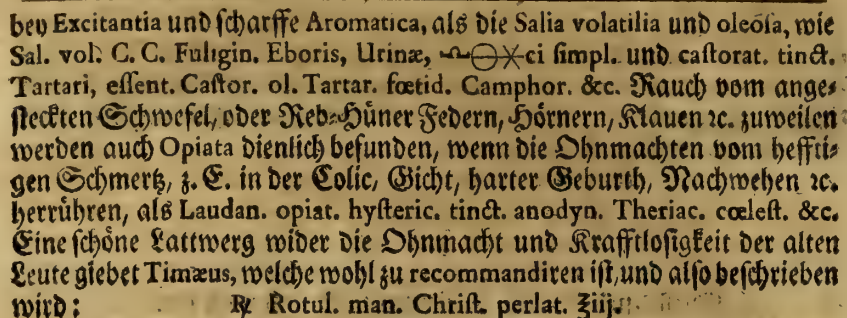 bey Excitantia und ſcharffe Aromatica, als die Salia volatilia und oleôſa, wie
Sal. vol. C. C. Fuligin. Eboris, Urinæ, 🜿⊖⚹ci ſimpl. und caſtorat. tinct.
Tartari, eſſent. Caſtor. ol. Tartar. fœtid. Camphor. &c. Rauch vom ange⸗
ſteckten Schwefel, oder Reb⸗Hüner Federn, Hörnern, Klauen ꝛc. zuweilen
werden auch Opiata dienlich befunden, wenn die Ohnmachten vom heffti⸗
gen Schmertz, z. E. in der Colic, Gicht, harter Geburth, Nachwehen ꝛc.
herrühren, als Laudan. opiat. hyſteric. tinct. anodyn. Theriac. cœleſt. &c.
Eine ſchöne Lattwerg wider die Ohnmacht und Krafftloſigkeit der alten
Leute giebet Timæus, welche wohl zu recommandiren iſt, und alſo beſchrieben
wird: ℞ Rotul. man. Chriſt. perlat. ℥iij.